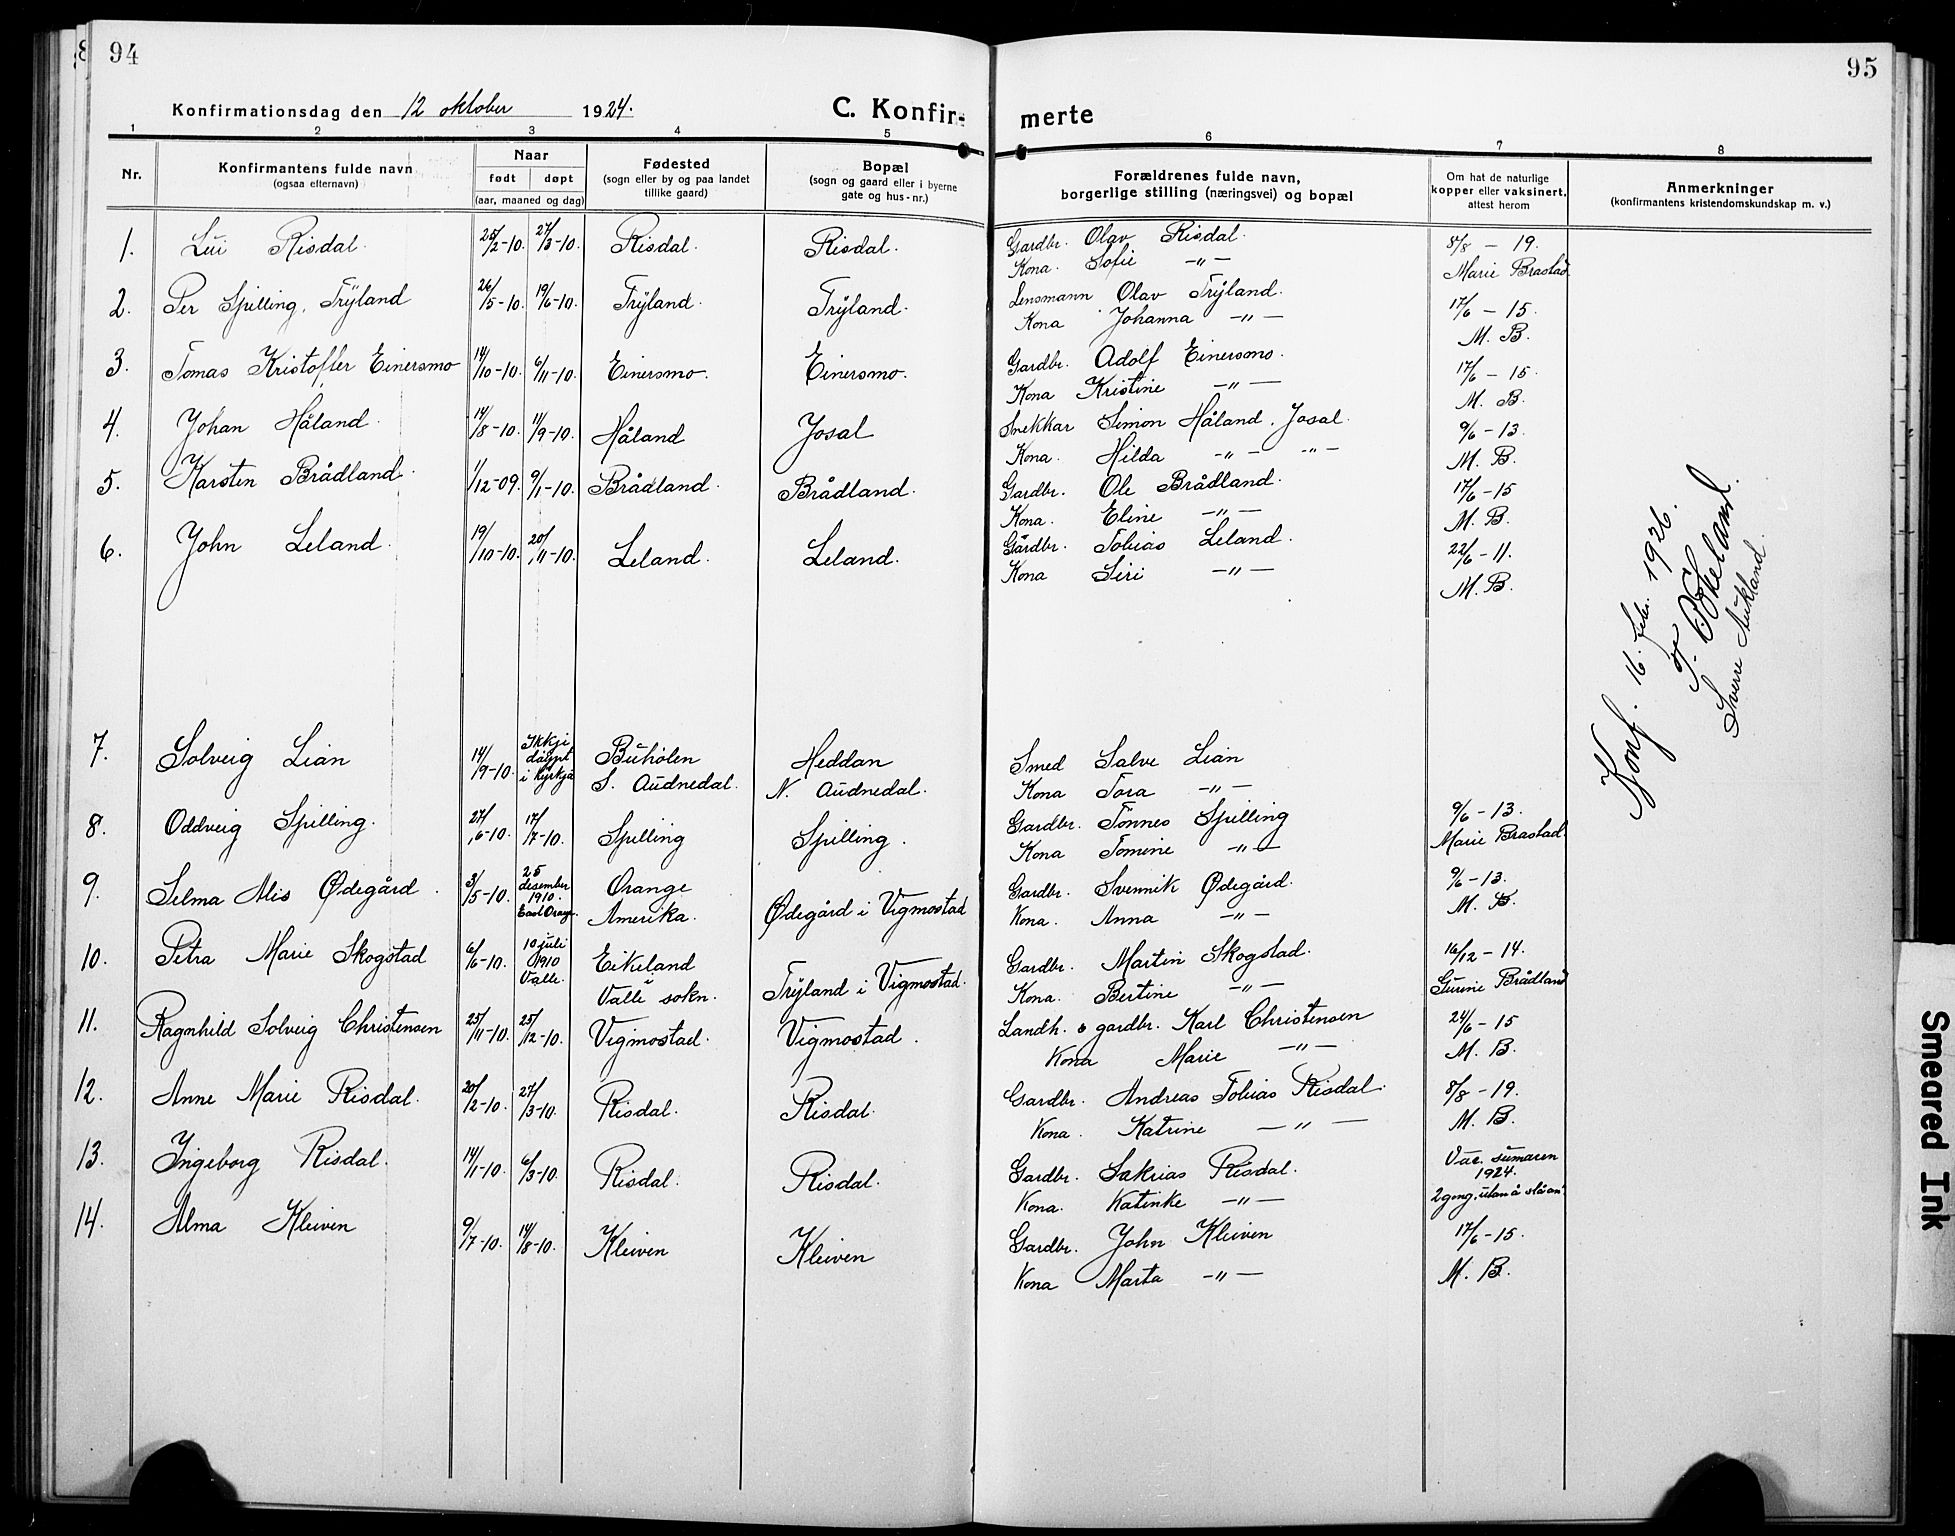 94
95
Konfirmationsdag den 12 oktober 1924.
C. Konfir- merte
1 2 3 4 5 6 7 8
Nr.
Konfirmantens fulde navn
(ogsaa efternavn)
Naar
født døpt
(aar, maaned og dag)
Fødested
(sogn eller by og paa landet
tillike gaard)
Bopæl
(sogn og gaard eller i byerne
gate og hus-nr.)
Forældrenes fulde navn,
borgerlige stilling (næringsvei) og bopæl
Om hat de naturlige
kopper eller vaksinert,
attest herom
Anmerkninger
(konfirmantens kristendomskundskap m. v.)
1. Lui Risdal. 25/2-10. 27/3-10. Risdal. Risdal. Gardbr. Olav Risdal. 8/8 - 19.
Kona. Sofie -"- Marie Brastad
2. Per Spilling, Trÿland 26/5-10. 19/6-10. Trÿland. Trÿland. Lensmann Olav Trÿland. 17/6 - 15.
Kona Johanna -"- M. B.
3. Tomas Kristoffer Einersmo 14/10-10. 6/11-10. Einersmo. Einersmo. Gardbr. Adolf Einersmo. 17/6 - 15.
Kona Kristine -"- M. B.
4. Johan Håland. 14/8-10. 11/9-10. Håland Josal Snekkar Simon Håland, Josal. 9/6 - 13.
Kona. Hilda -"- -"- M. B.
5. Karsten Brådland. 1/12-09. 9/1-10. Brådland. Brådland. Gardbr. Ole Brådland. 17/6 - 15
Kona. Eline -"- M. B.
6. John Leland. 19/10-10. 20/11-10. Leland. Leland. Gårdbr. Tobias Leland. 22/6 - 11.
Kona Siri -"- M. B.
Konf. 16. febr. 1926.
Sverre Aukland.
7. Solveig Lian 14/9-10. Ikkji
døypt
i kyrkja Buholen Heddan Smed Salve Lian
S. Audnedal. N. Audnedal. Kona Tora -"-
8. Oddveig Spilling. 27/6-10. 17/7-10. Spilling Spilling. Gardbr. Tönnes Spilling 9/6 - 13.
Kona Tomine -"- Marie Brastad.
9. Selma Alis Ødegård. 3/5-10. 25
desember
1910.
East Orange. Orange Ødegård i Vigmostad Gardbr. Svennik Ødegård. 9/6 - 13.
Amerika. Kona. Anna -"- M. B.
10. Petra Marie Skogstad 6/6-10. 10 juli
1910
Valle. Eikeland Trÿland i Vigmostad. Gardbr. Martin Skogstad. 16/12 - 14.
Valle sokn. Kona. Bertine -"- Gurine Brådland
11. Ragnhild Solveig Christensen 25/11-10. 25/12-10. Vigmostad. Vigmostad. Landh. o gardbr. Karl Christensen 24/6 - 15
Kona Marie -"- M. B.
12. Anne Marie Risdal. 20/2-10. 27/3-10. Risdal. Risdal. Gardbr. Andreas Tobias Risdal. 8/8 - 19.
Kona. Katrine -"- M. B.
13. Ingeborg Risdal. 14/1-10. 6/3-10. Risdal. Risdal. Gardbr. Sakrias Risdal. Vac. sumaren
1924.
Kona. Katinke -"- 2 gong. utan å slå an.
14. Alma Kleiven 9/7-10. 14/8-10. Kleiven Kleiven Gardbr. John Kleiven 17/6 - 15.
Kona Marta -"- M. B.
Smeared Ink